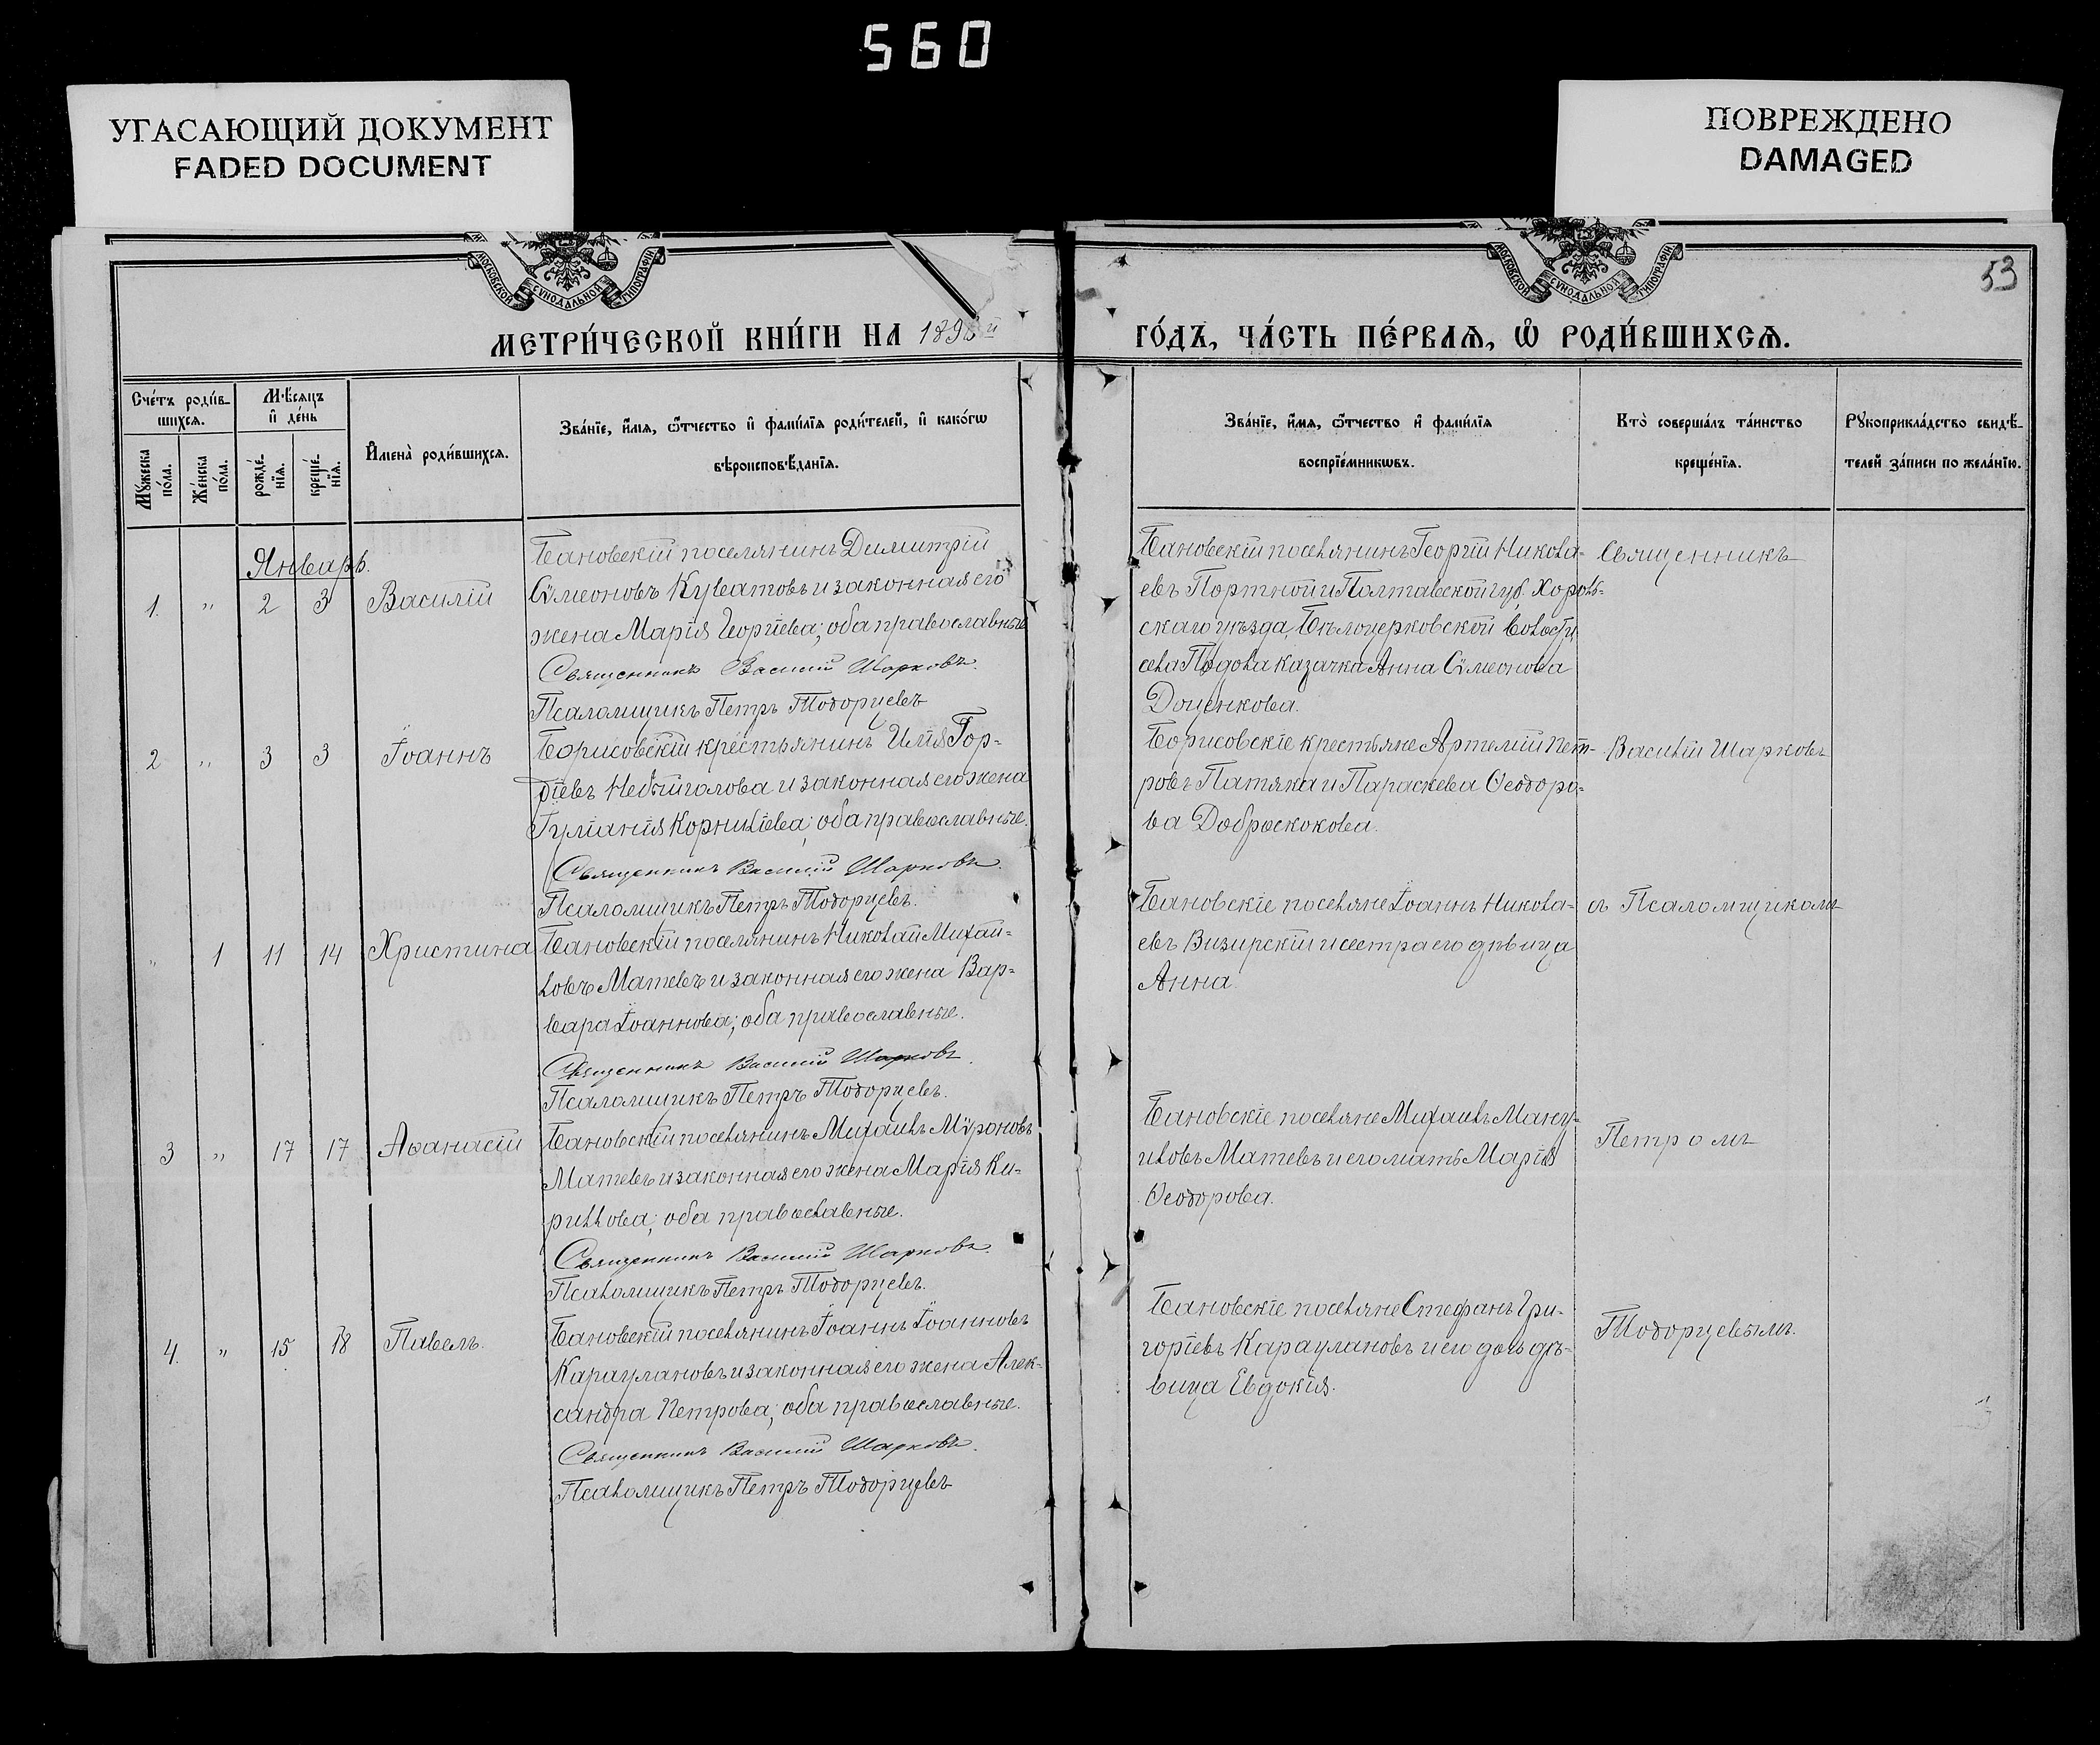 560
УГАСАЮЩИЙ ДОКУМЕНТ
FADED DOCUMENT
ПОВРЕЖДЕНО
DAMAGED
МОСКОВСКОЙ СУНОДАЛЬНОЙ ТИПОГРАФІИ
МОСКОВСКОЙ СУНОДАЛЬНОЙ ТИПОГРАФІИ
53
МЕТРИ́ЧЕСКОЙ КНИ́ГИ НА
ГО́ДЪ, ЧА́СТЬ ПЕ́РВАѦ, Ѡ҆ РОДИ́ВШИХСѦ.
Сче́тъ роди́в-
шихсѧ.
Мꙋ́жеска
по́ла.
Же́нска
по́ла.
Мѣ́сѧцъ
и҆ де́нь
рожде́-
нїѧ.
креще́-
нїѧ.
И҆мена̀ роди́вшихсѧ.
Зва́нїе, и҆́мѧ, ѻ҆́тчество и҆ фами́лїѧ роди́телей, и҆ како́гѡ
вѣроисповѣ́данїѧ.
Зва́нїе, и҆́мѧ, ѻ҆́тчество и҆ фами́лїѧ
воспрїе́мникѡвъ.
Кто̀ соверша́лъ та́инство
креще́нїѧ.
Рꙋкоприкла́дство свидѣ́-
телей за́писи по жела́нїю.
Январь.
1. " 2 3 Василій
Бановскій поселянинъ Димитрій
Сѵмеоновъ Куватовъ и законная его
жена Марія Георгіева; оба православные
Священникъ Василій Шарковъ.
Псаломщикъ Петръ Тодорцевъ
Бановскій поселянинъ Георгій Никола-
евъ Портной и Полтавской губ. Хороль-
скаго уѣзда, Бѣлоцерковской волости
села Подока казачка Анна Сѵмеонова
Доценкова.
Священникъ
2 " 3 3 Іоаннъ
Борисовскій крестьянинъ Илія Гор-
діевъ Небѣйголова и законная его жена
Іуліанія Корниліева; оба православные.
Священникъ Василій Шарковъ.
Псаломщикъ Петръ Тодорцевъ.
Борисовскіе крестьяне Артемій Пет-
ровъ Патяка и Параскева Ѳеодоро-
ва Доброскокова.
Василій Шарковъ
" 1 11 14 Христина
Бановскій поселянинъ Николай Михай-
ловъ Матевъ и законная его жена Вар-
вара Іоаннова; оба православные.
Священникъ Василій Шарковъ.
Псаломщикъ Петръ Тодорцевъ.
Бановскіе поселяне Іоаннъ Никола-
евъ Визирскій и сестра его дѣвица
Анна
съ Псаломщикомъ
3 " 17 17 Аѳанасій
Бановскій поселянинъ Михаилъ Мѵроновъ
Матевъ и законная его жена Марія Ки-
риллова; оба православные.
Священникъ Василій Шарковъ.
Псаломщикъ Петръ Тодорцевъ.
Бановскіе поселяне Михаилъ Ману-
иловъ Матевъ и его мать Марія
Ѳеодорова.
Петромъ
4. " 15 18 Павелъ.
Бановскій поселянинъ Іоаннъ Іоанновъ
Карауланов и законная его жена Алек-
сандра Петрова; оба православные.
Священникъ Василій Шарковъ.
Псаломщикъ Петръ Тодорцевъ
Бановскіе поселяне Стефанъ Гри-
горіевъ Караулановъ и его дочь дѣ-
вица Евдокія.
Тодорцевымъ.